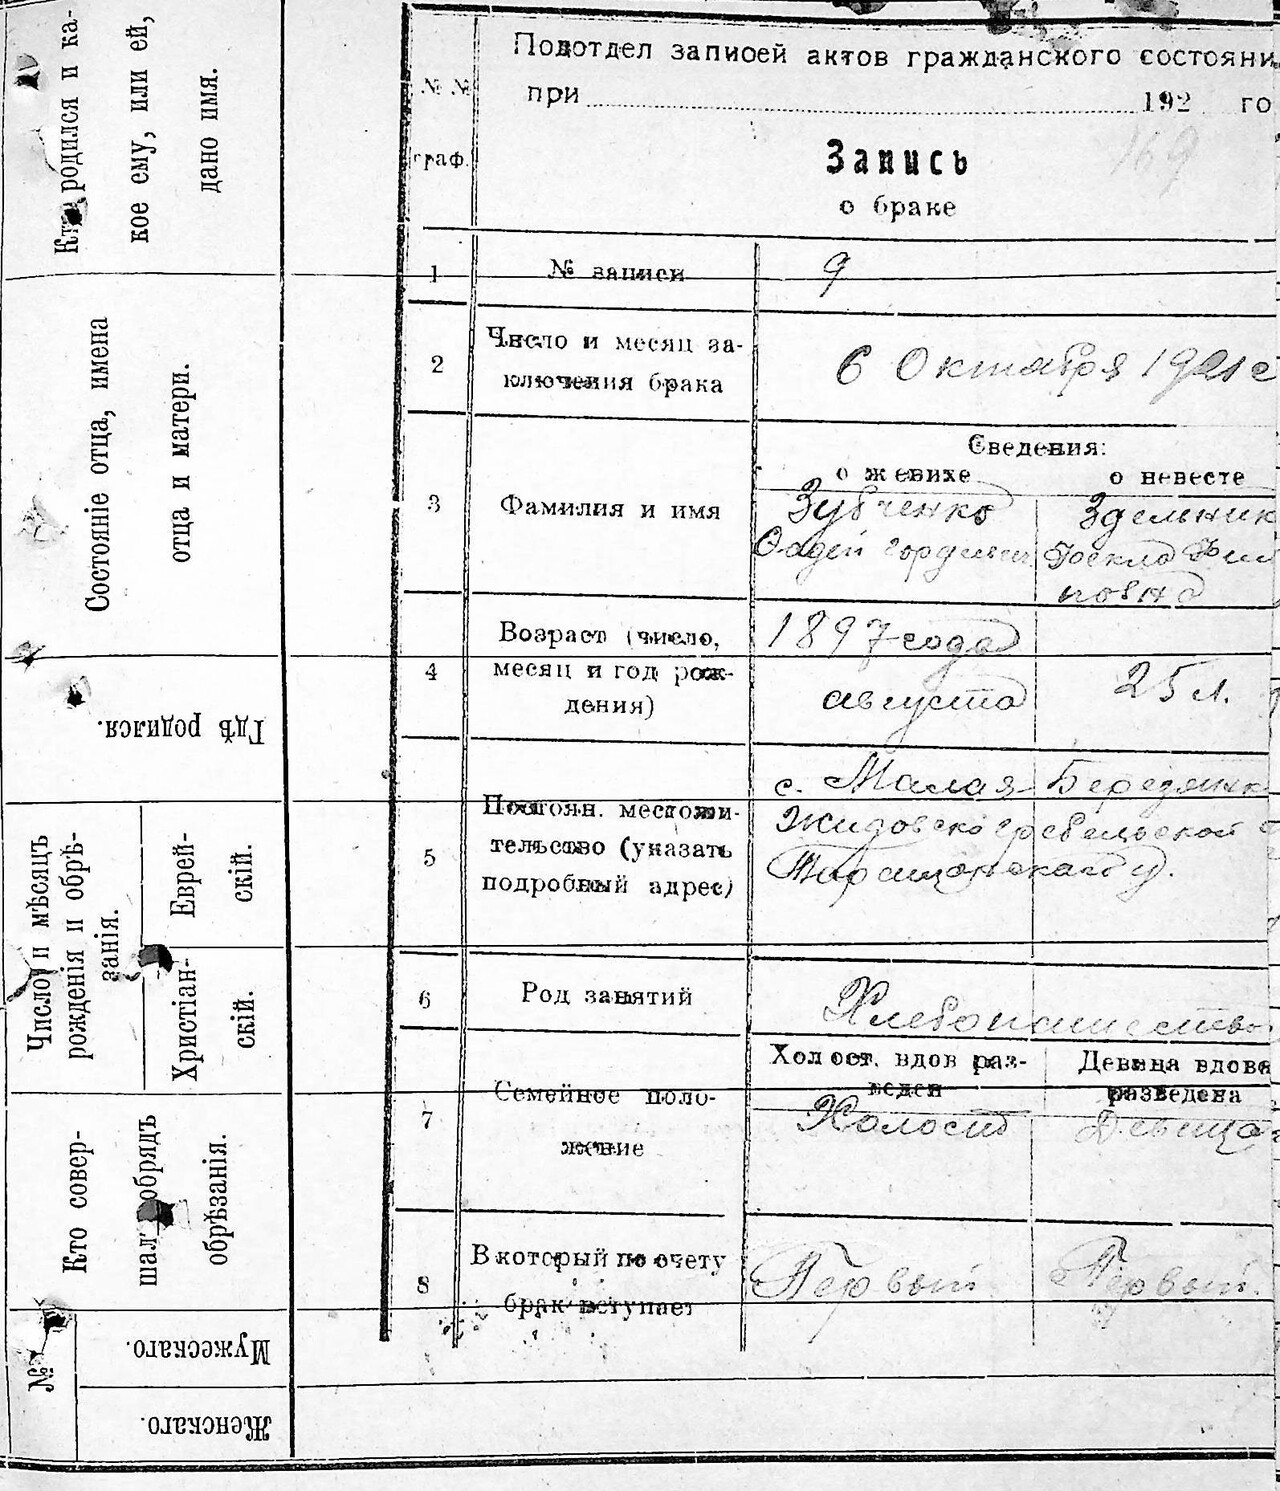 Кто родился и ка-
кое ему, или ей,
дано имя.
Состояніе отца, имена
отца и матери.
Гдѣ родился.
Число и мѣсяцъ
рожденія и обрѣ-
занія.
Еврей-
скій.
Христіан-
скій.
Кто совер-
шалъ обрядъ
обрѣзанія.
№
Мужескаго.
Женскаго.
№ №
граф.
Подотдел записей актов гражданского состояни
при 192 го
169
Запись
о браке
1 № записи 9
2 Число и месяц за-
ключения брака
6 Октября 1921 г
Сведения:
о женихе о невесте
3 Фамилия и имя
Зубченко
Фадей Гордеевич
Здельник
Фекла Фили
повна
4 Возраст (число,
месяц и год рож-
дения)
1897 года
августа
25 л.
5 Постоян. местожи-
тельство (указать
подробный адрес)
с. Малая Березянк
Жидовско гребельской
Таращанского у.
6 Род занятий
Хлебопашество
7 Семейное поло-
жение
Холост. вдов раз-
веден
Девица вдова
разведена
Холост
Девица
8 В который по счету
брак вступает
Первый
Первый.